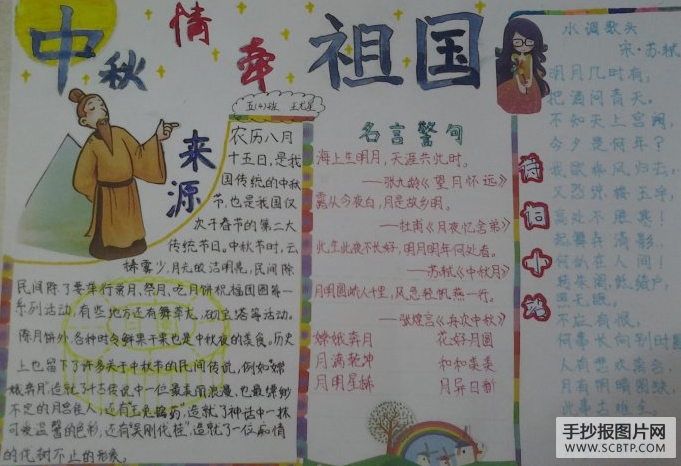 中秋情牵祖国
来源
农历八月
十五日，是我
国传统的中秋
节，也是我国仅
次于春节的第二大
传统节日。中秋节时，云
稀雾少，月光皎洁明亮，民间除
民间除了要举行赏月、祭月、吃月饼祝福团圆等一
系列活动，有些地方还有舞草龙，砌宝塔等活动。
除月饼外，各种时令鲜果干果也是中秋夜的美食。历史
上也留下了许多关于中秋节的民间传说，例如"嫦
娥奔月"造就了
不定的月宫佳人；还有"玉兔捣药"，造就了神话中一抹
可爱温馨的色彩，还有"吴刚伐桂"，造就了一位痴情
的伐树不止的形象。
名言警句
海上生明月，天涯共此时。
——张九龄《望月怀远》
露从今夜白，月是故乡明。
——杜甫《月夜忆舍弟》
此生此夜不长好，明月明年何处看。
——苏轼《中秋月》
——张煌言《舟次中秋》
嫦娥奔月 花好月圆
月满乾坤 和和美美
月明星稀 月异日新
水调歌头
宋·苏轼
明月几时有，
把酒问青天。
不知天上宫阙，
今夕是何年？
我欲乘风归去，
又恐琼楼玉宇，
高处不胜寒！
起舞弄清影，
何似在人间！
转朱阁，低绮户，
照无眠。
不应有恨，
何事长向别时圆
人有悲欢离合，
月有阴晴圆缺，
此事古难全。
手抄报图片网
WWW.SCBTP.COM